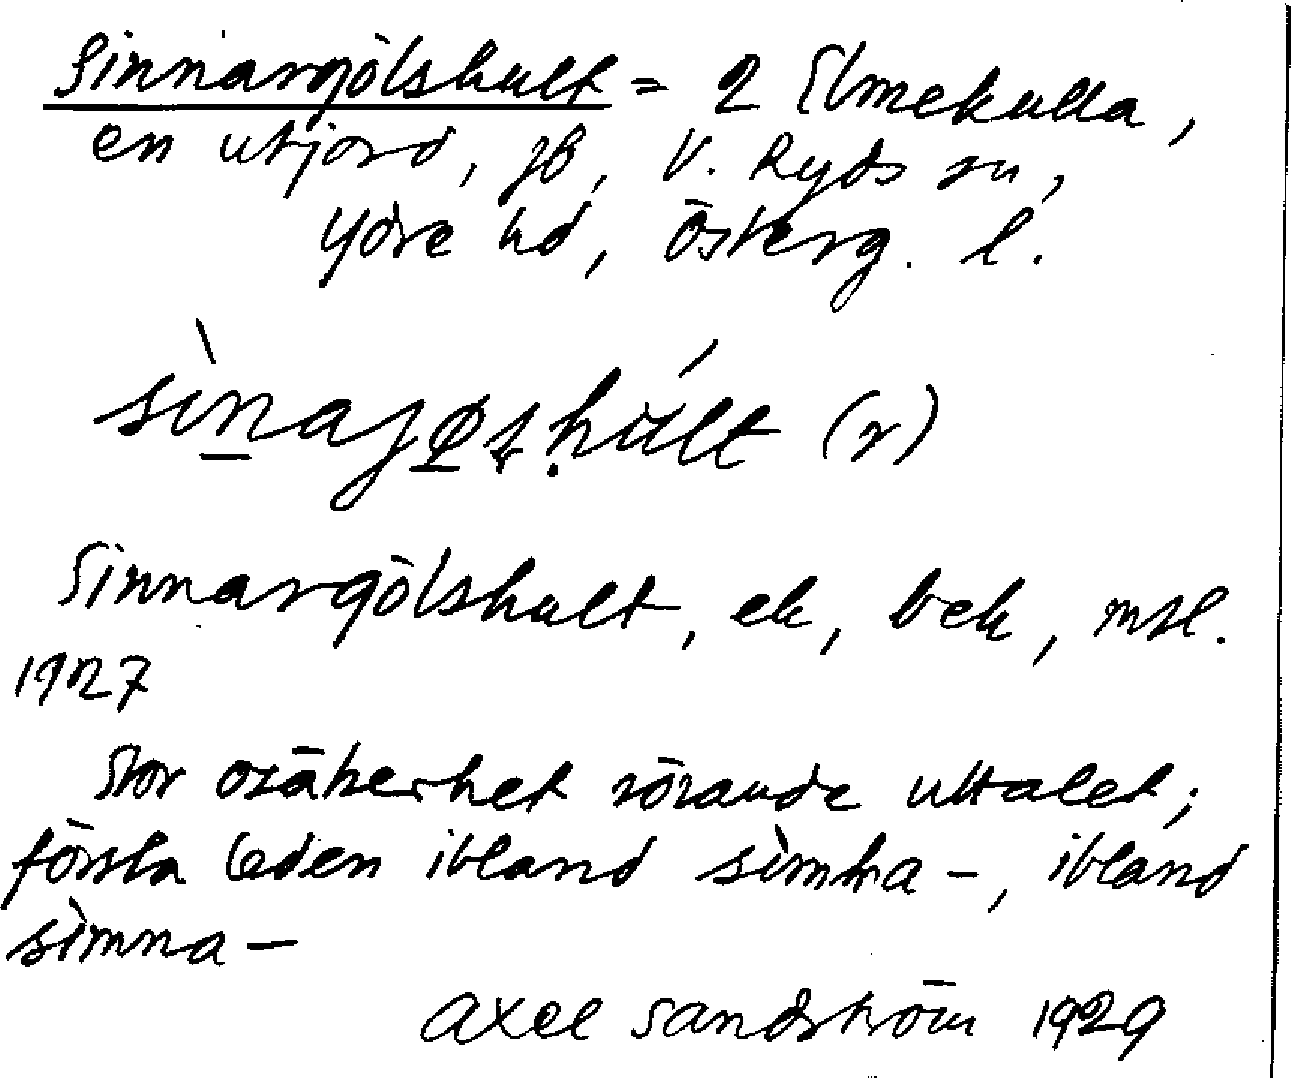 Sinnargölshult = 2 Elmekulla,
en utjord, jb, V. Ryds sn,
Ydre hd, Österg. l.
(r)
Sinnargölshult, ek, bek, msl.
1927
Stor osäkerhet rörande uttalet;
första leden ibland sìmka-, ibland
sìmna-
Axel Sandström 1929